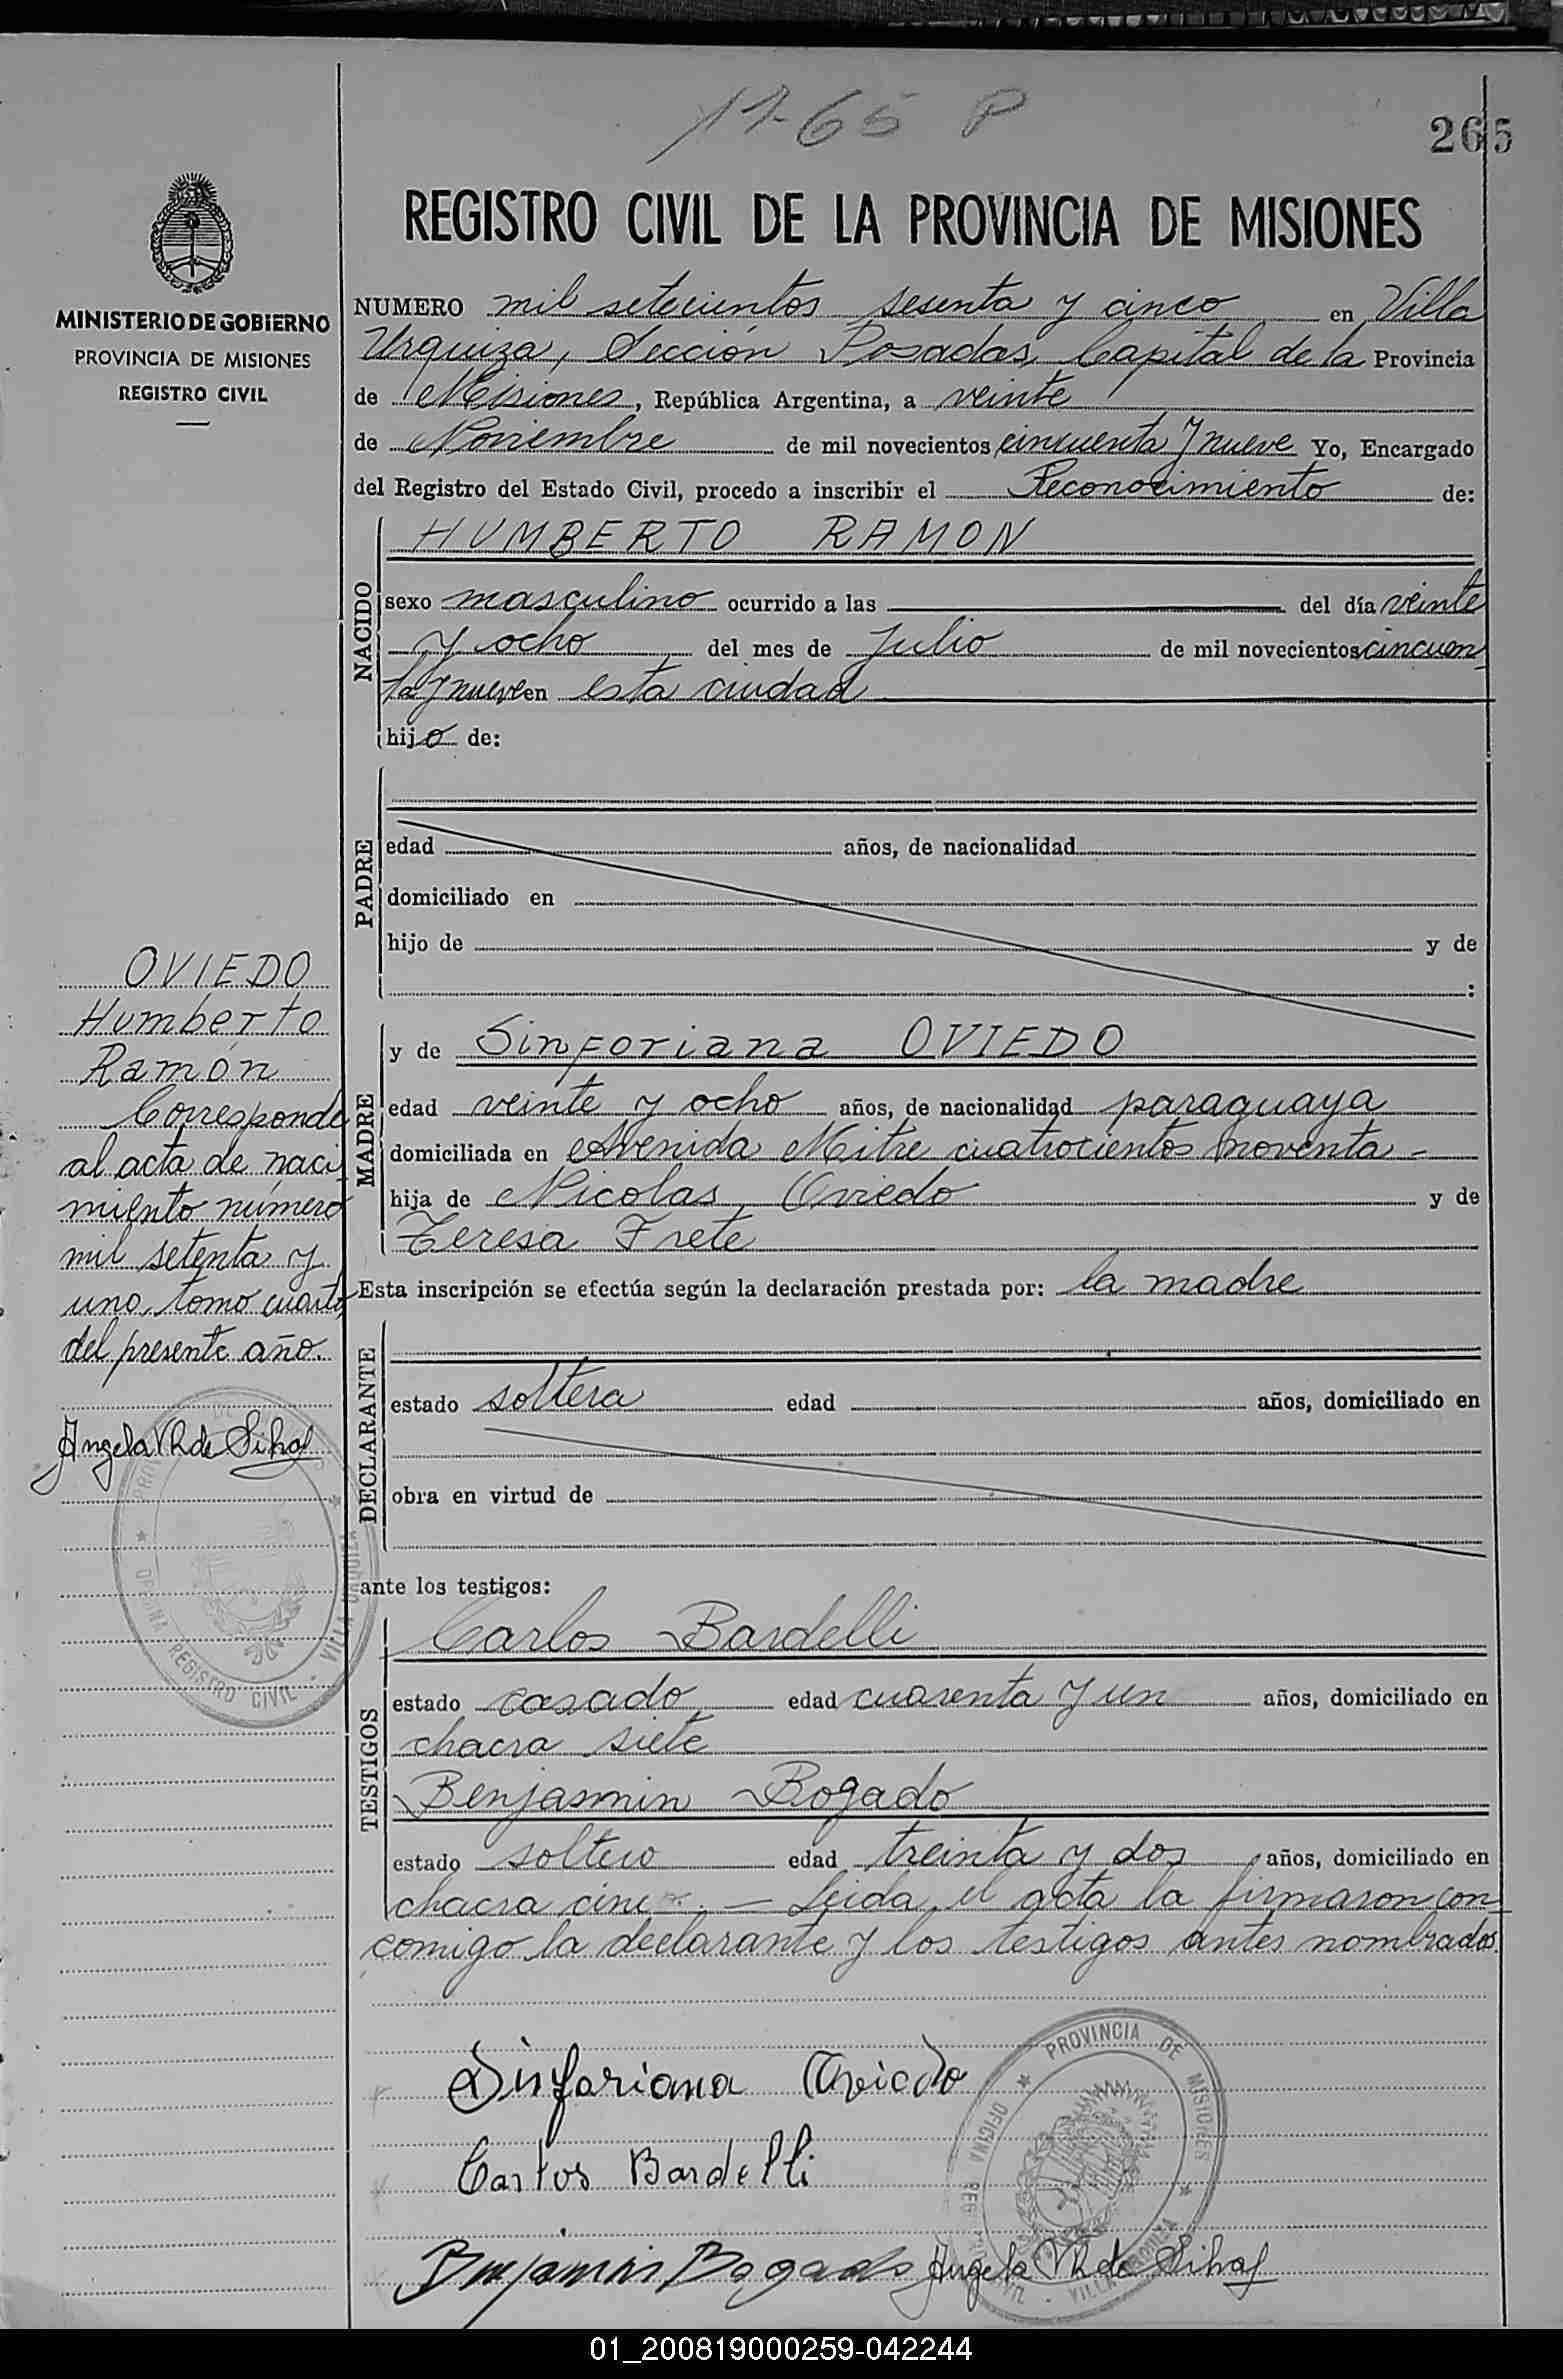 1765 P
265
REGISTRO CIVIL DE LA PROVINCIA DE MISIONES
MINISTERIO DE GOBIERNO
PROVINCIA DE MISIONES
REGISTRO CIVIL
NUMERO mil setecientos sesenta y cinco en Villa
Urquiza, Sección Posadas, Capital de la Provincia
de Misiones, República Argentina, a veinte
de Noviembre de mil novecientos cincuenta y nueve Yo, Encargado
del Registro del Estado Civil, procedo a inscribir el Reconocimiento de:
NACIDO
HUMBERTO RAMON
sexo masculino ocurrido a las del día veinte
y ocho del mes de Julio de mil novecientos cincuen
ta y nueve en esta ciudad
hijo de:
PADRE
edad años, de nacionalidad
domiciliado en
hijo de y de
:
MADRE
y de Sinforiana OVIEDO
edad veinte y ocho años, de nacionalidad paraguaya
domiciliada en Avenida Mitre cuatrocientos noventa -
hija de Nicolas Oviedo y de
Teresa Frete
Esta inscripción se efectúa según la declaración prestada por: la madre
DECLARANTE
estado soltera edad años, domiciliado en
obra en virtud de
ante los testigos:
TESTIGOS
Carlos Bardelli
estado casado edad cuarenta y un años, domiciliado en
chacra siete
Benjamin Bogado
estado soltero edad treinta y dos años, domiciliado en
chacra cinco. — Leida el acta la firmaron con
comigo la declarante y los testigos antes nombrados.
OVIEDO
Humberto
Ramón
Corresponde
al acta de naci
miento número
mil setenta y
uno, tomo cuarto,
del presente año.
Angela V. de
PROVINCIA DE MISIONES
OFICINA REGISTRO CIVIL - VILLA URQUIZA
Sinforiana Oviedo
Carlos Bardelli
Benjamin Bogado
Angela V. de
PROVINCIA DE MISIONES
OFICINA REGISTRO CIVIL - VILLA URQUIZA
01_200819000259-042244